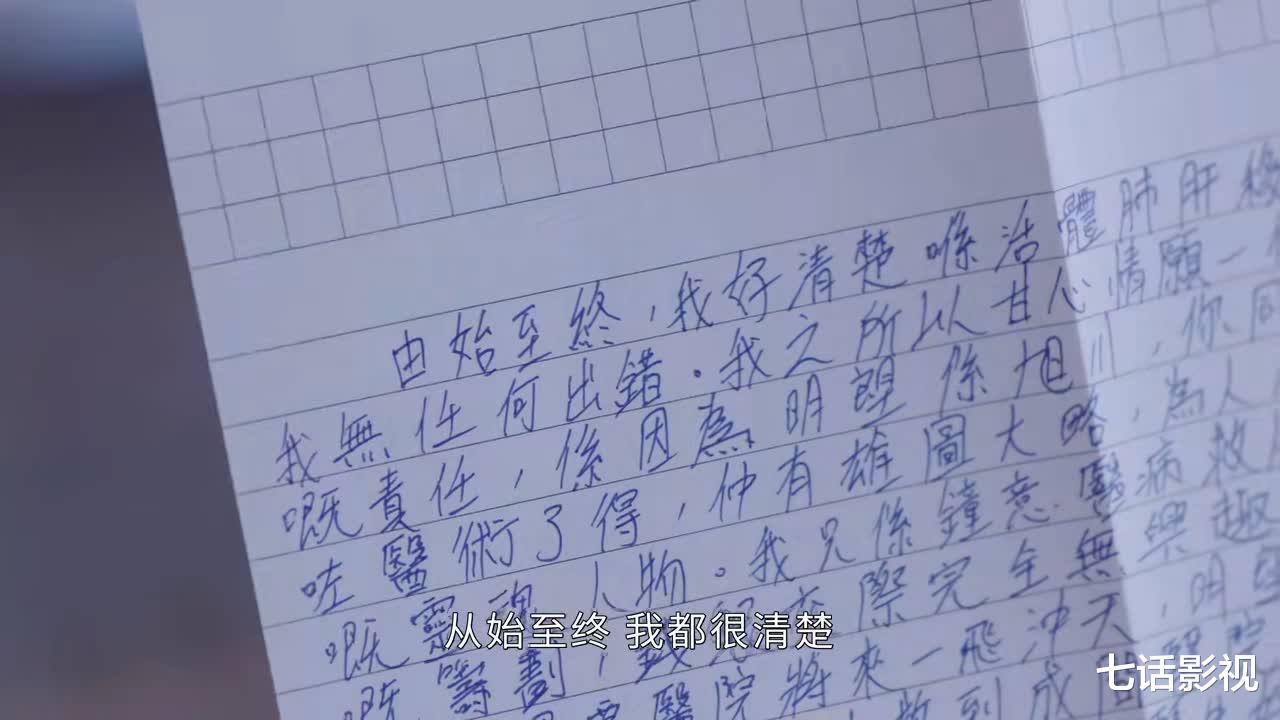 由始至終，我好清楚喺活體肺肝移
我無任何出錯。我之所以甘心情願一
嘅責任，係因為明塱係旭川，你同
咗醫術了得，仲有雄圖大略，為人
嘅靈魂人物。我只係鐘意醫病救
嘅籌劃，際完全無興趣
醫院將來一飛沖天，明
到成
从始至终 我都很清楚
七话影视